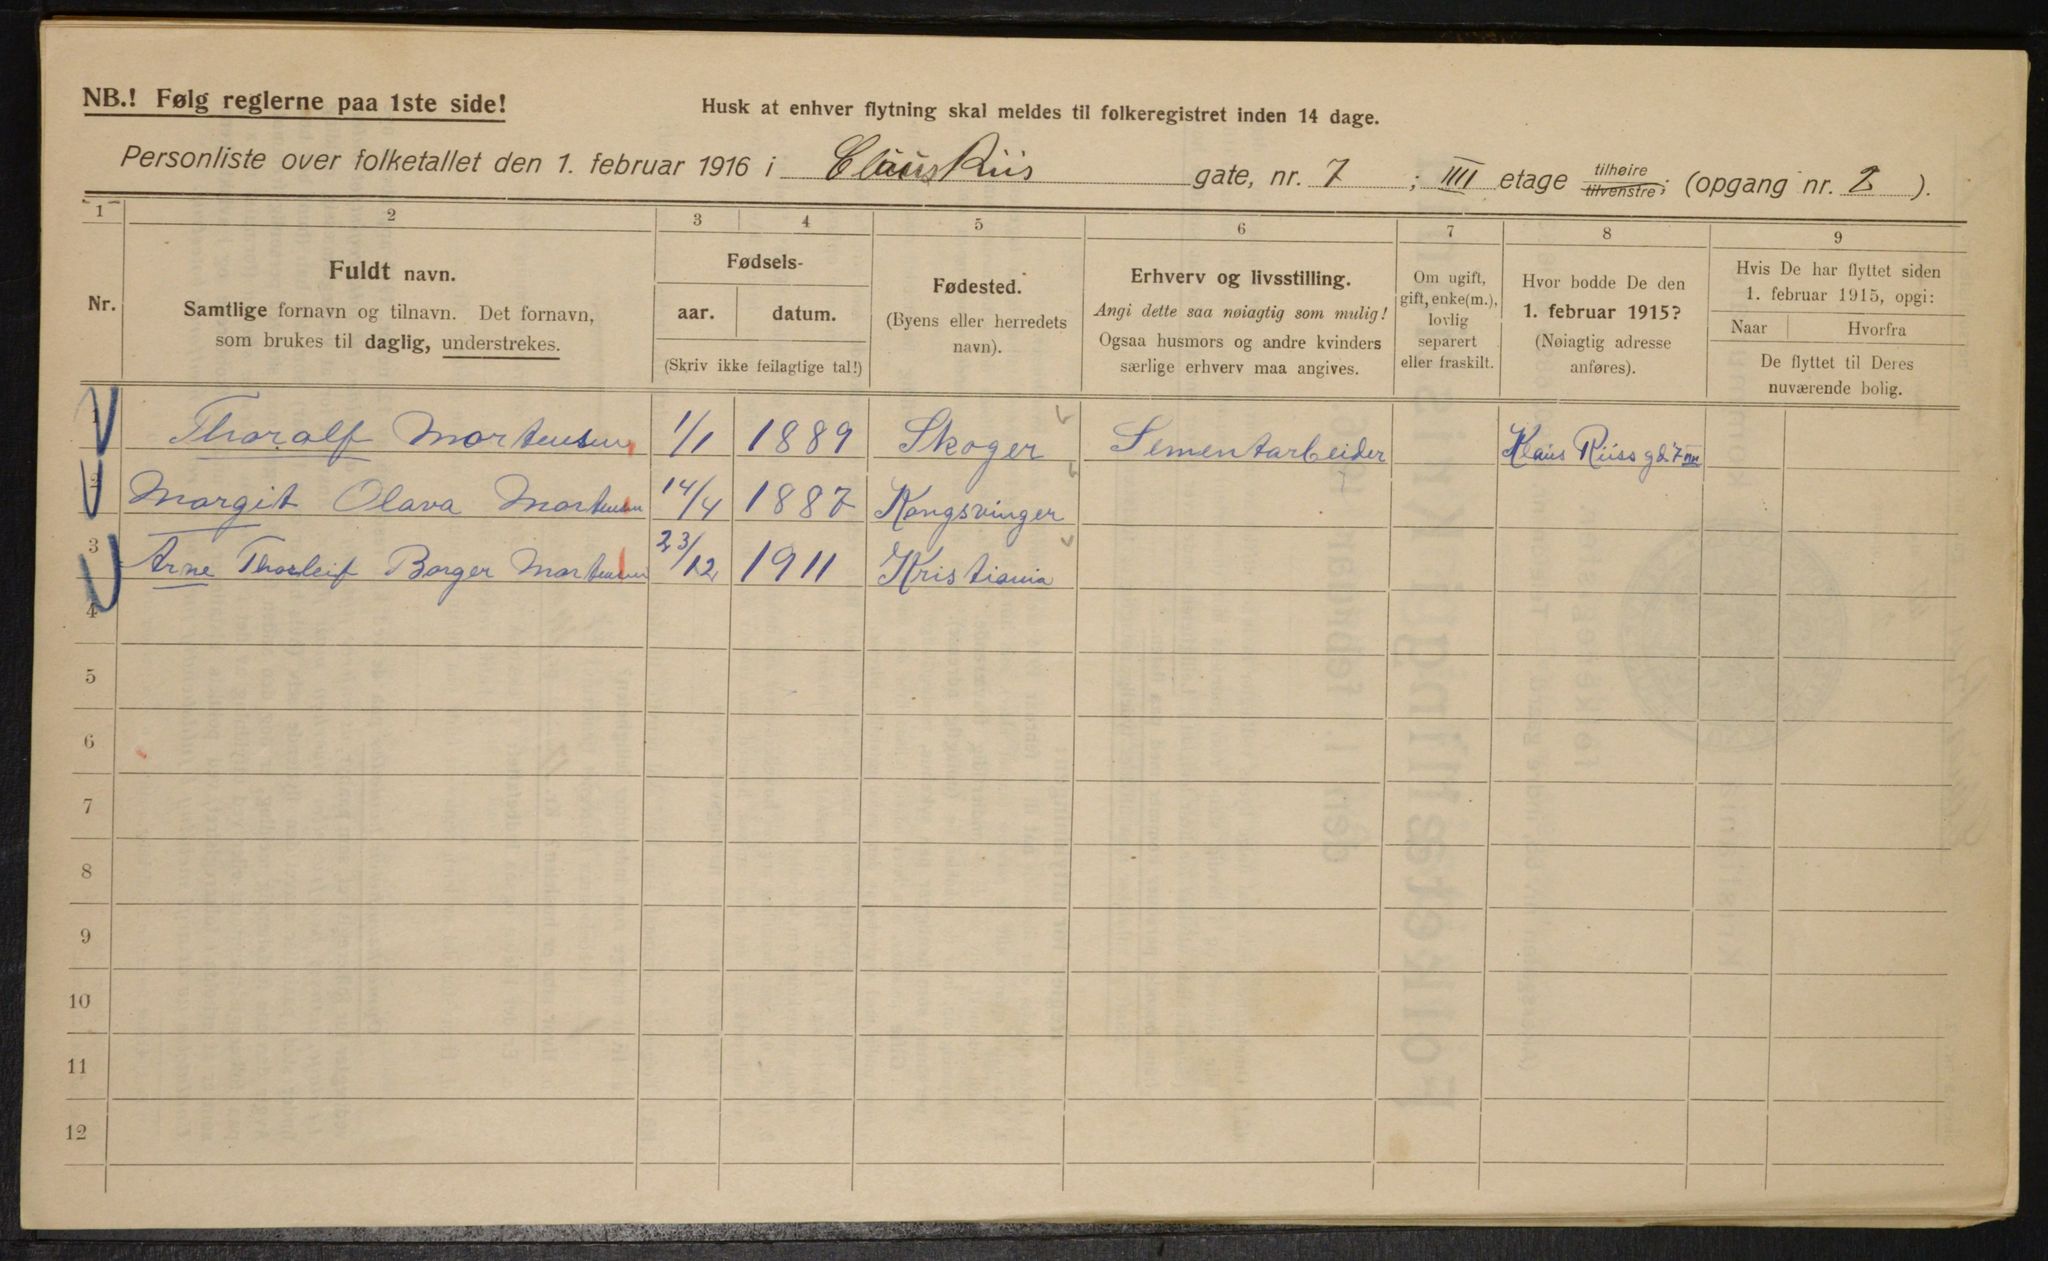 NB.! Følg reglerne paa 1ste side!
Husk at enhver flytning skal meldes til folkeregistret inden 14 dage.
Personliste over folketallet den 1. februar 1916 i Claus Riis gate, nr. 7 ; IIII etage tilhøire tilvenstre; (opgang nr. 2 ).
1 2 3 4 5 6 7 8 9
Nr.
Fuldt navn.
Samtlige fornavn og tilnavn. Det fornavn,
som brukes til daglig, understrekes.
Fødsels-
aar. datum.
(Skriv ikke feilagtige tal!)
Fødested.
(Byens eller herredets
navn).
Erhverv og livsstilling.
Angi dette saa nøiagtig som mulig!
Ogsaa husmors og andre kvinders
særlige erhverv maa angives.
Om ugift,
gift, enke(m.),
lovlig
separert
eller fraskilt.
Hvor bodde De den
1. februar 1915?
(Nøiagtig adresse
anføres).
Hvis De har flyttet siden
1. februar 1915, opgi:
Naar Hvorfra
De flyttet til Deres
nuværende bolig.
1 Tharalf Mortensen 1/1 1889 Skoger Sementarbeider Klaus Riiss gd 7 IIII
2 Margit Olava Mortensen 14/4 1887 Kongsvinger
3 Arne Thorleif Borger Mortensen 23/12 1911 Kristiania
4
5
6
7
8
9
10
11
12